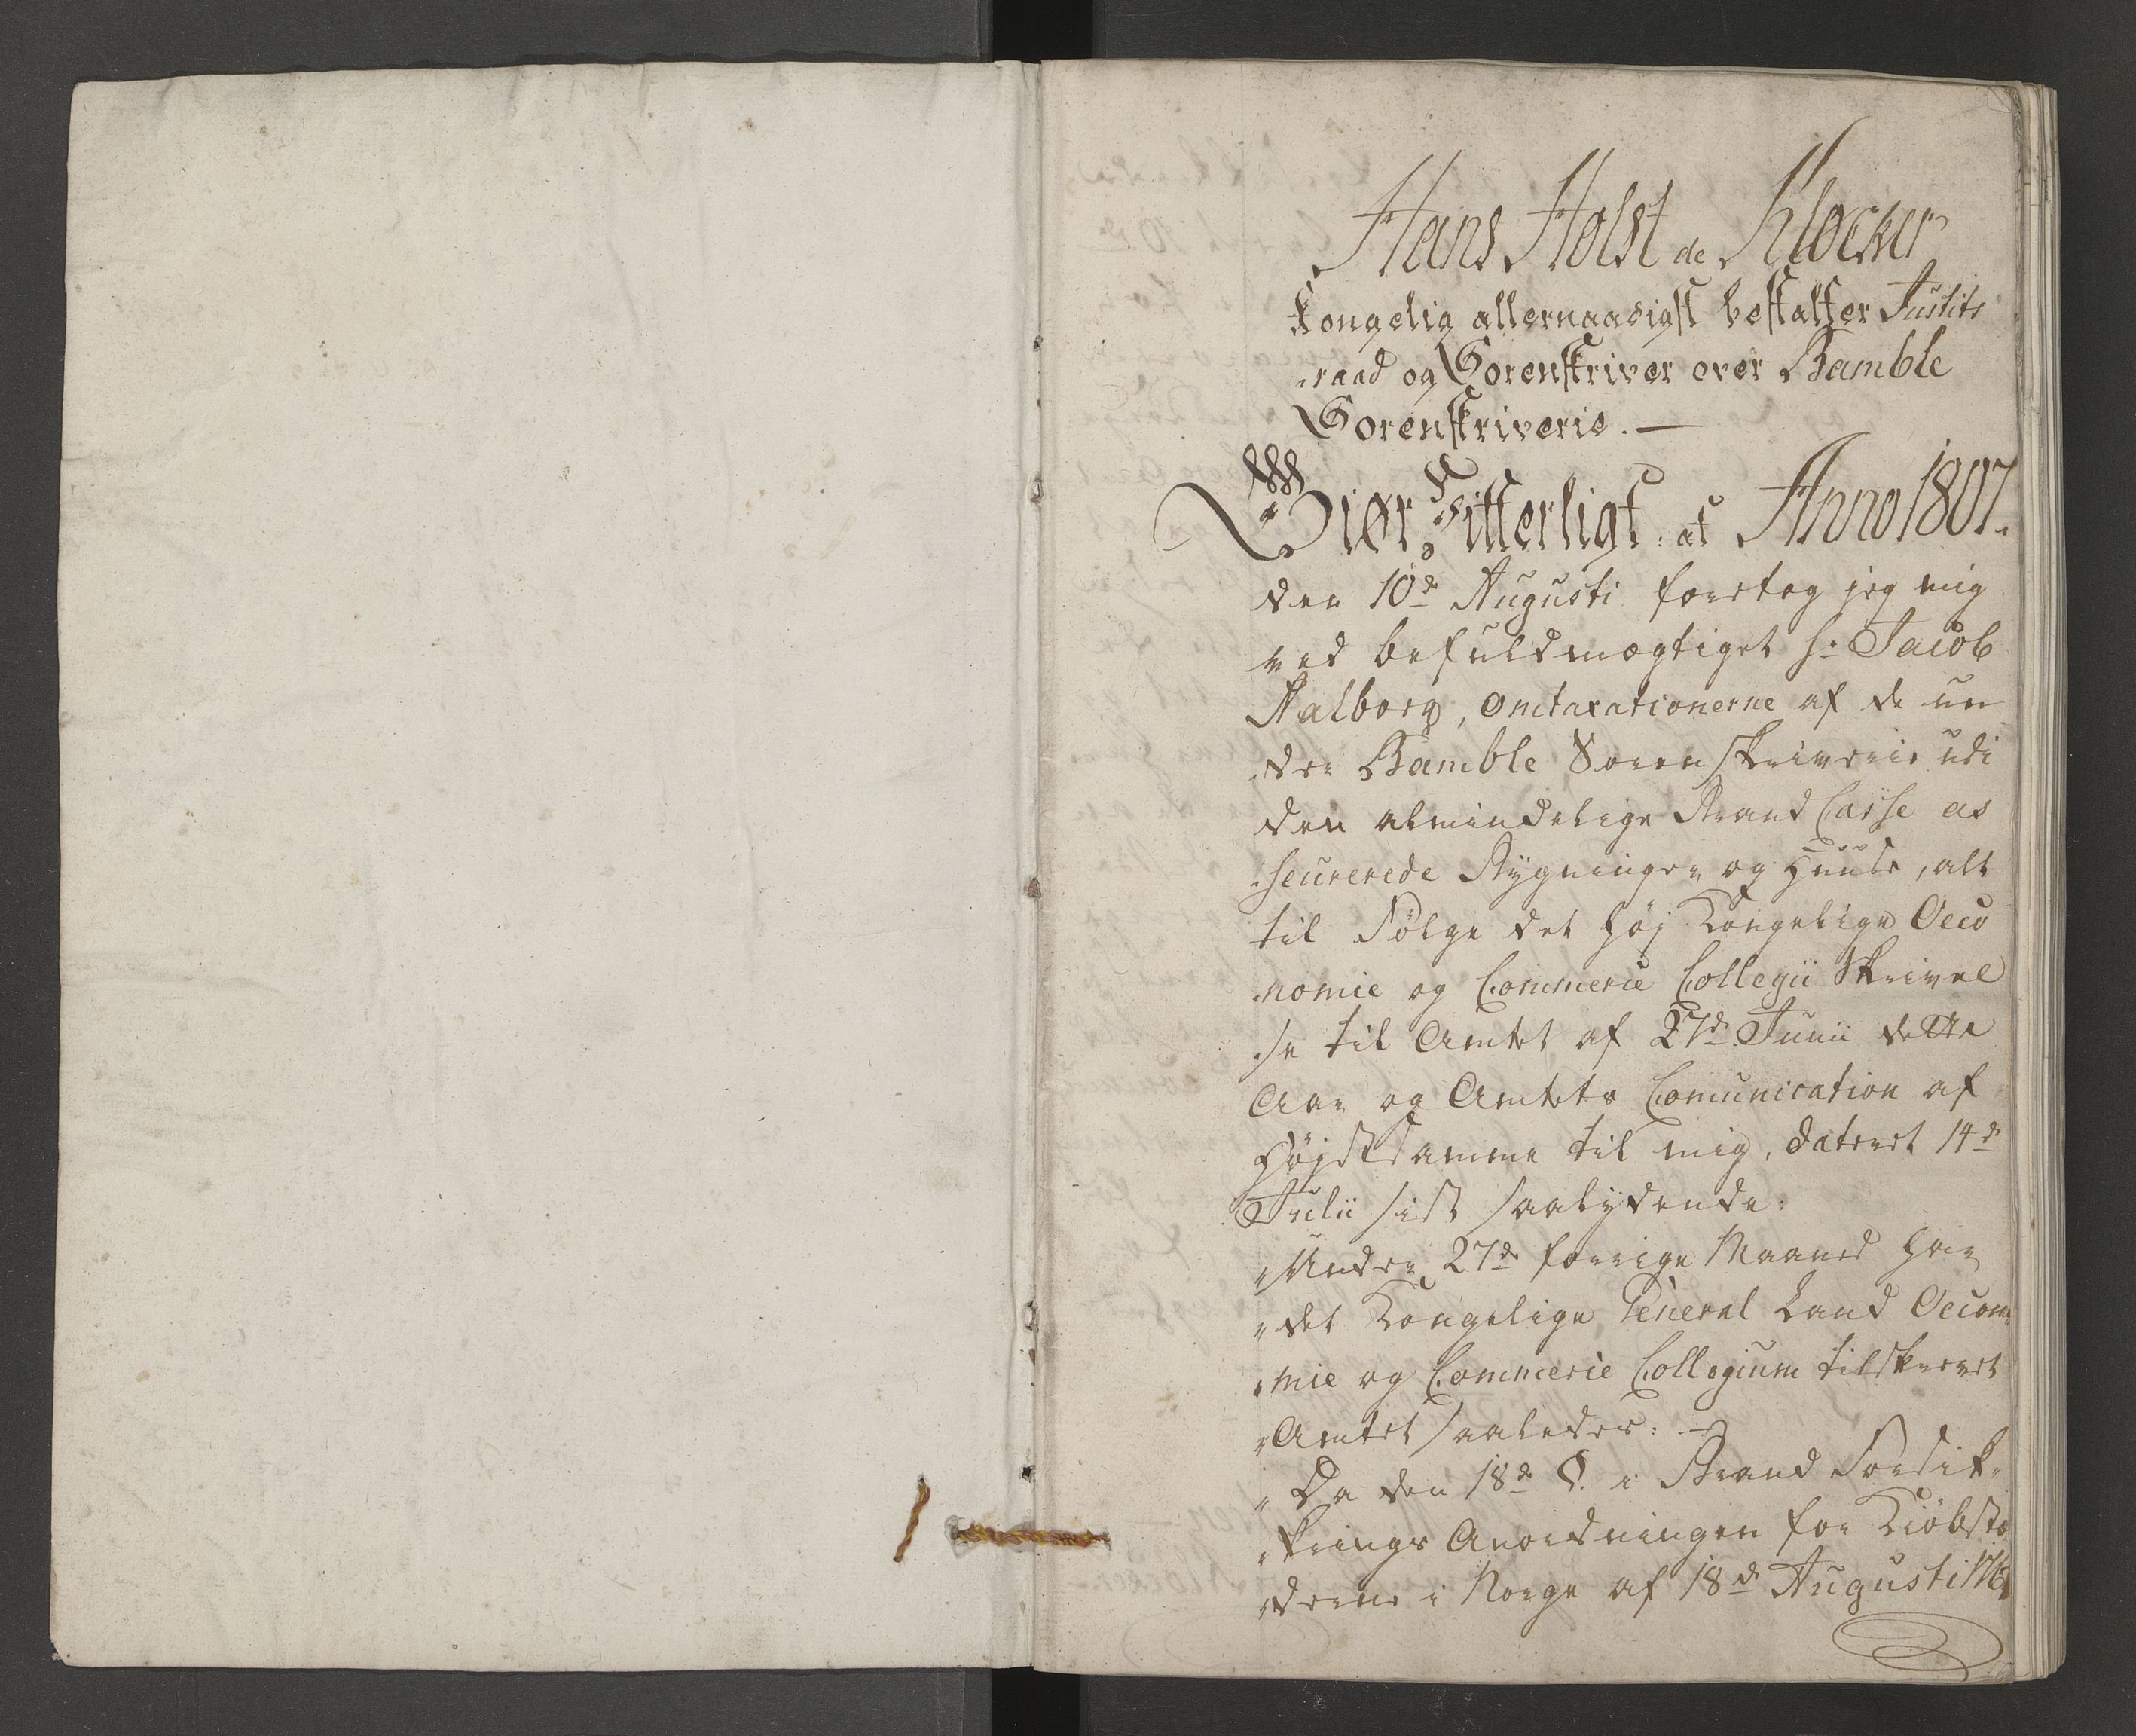 Hans Holst de Kløcker
Kongelig allernaadigst bestalter Justits
raad og Sorenskriver over Bamble
Sorenskriverie. —
Giør Vitterligt: at Anno 1807.
den 10de Augusti foretog jeg mig
ved befuldmægtiget Sr. Jacob
Aalborg, Omtaxationerne af de un
der Bamble Sorenskriverie udi
den almindelige Brand Casse as
seurerede Bygninger og Huuse, alt
til Følge det høj Kongelige Oeco
nomie og Commerce Collegii Skrivel
se til Amtet af 27de Junii dette
Aar og Amtets Comunication af
Højstsamme til mig, dateret 14de
Julii sidst saalydende:
"Under 27de forrige Maaned har
"det Kongelige General Land Oecono
"mie og Commerce Collegium tilskrevet
"Amtet saaledes: —
"Da den 18de §. i Brand Forsik
"krings Anordningen for Kiöbstæ
"derne i Norge af 18de Augusti